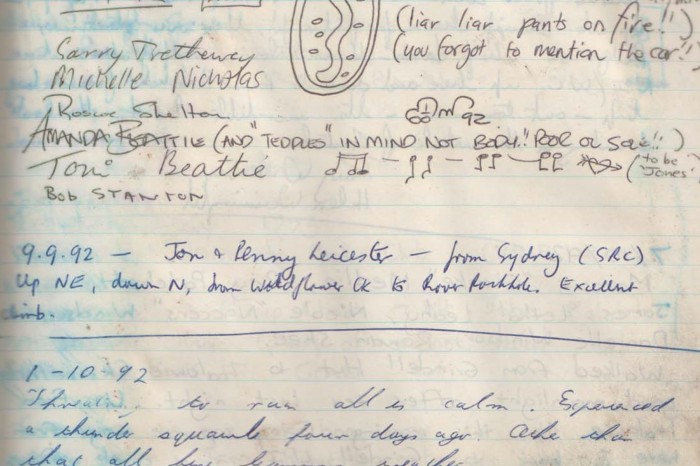 (liar liar pants on fire!!)
(you forgot to mention the car!!
Sarry Trethewey
Michelle Nicholas
Roscoe Shelton
92
AMANDA BEATTIE (AND "TEDDLES" IN MIND NOT BODY!! POOR OL SOLE!!)
Toni Beattie (to be Jones?
BOB STANTON
9.9.92 — Jon & Penny Leicester — from Sydney (SRC)
Up NE, down N, from Wildflower Ck to Rockhole. Excellent
climb.
1-10-92
to rain all is calm. Experienced
a thunder squawls four days ago
that all weather